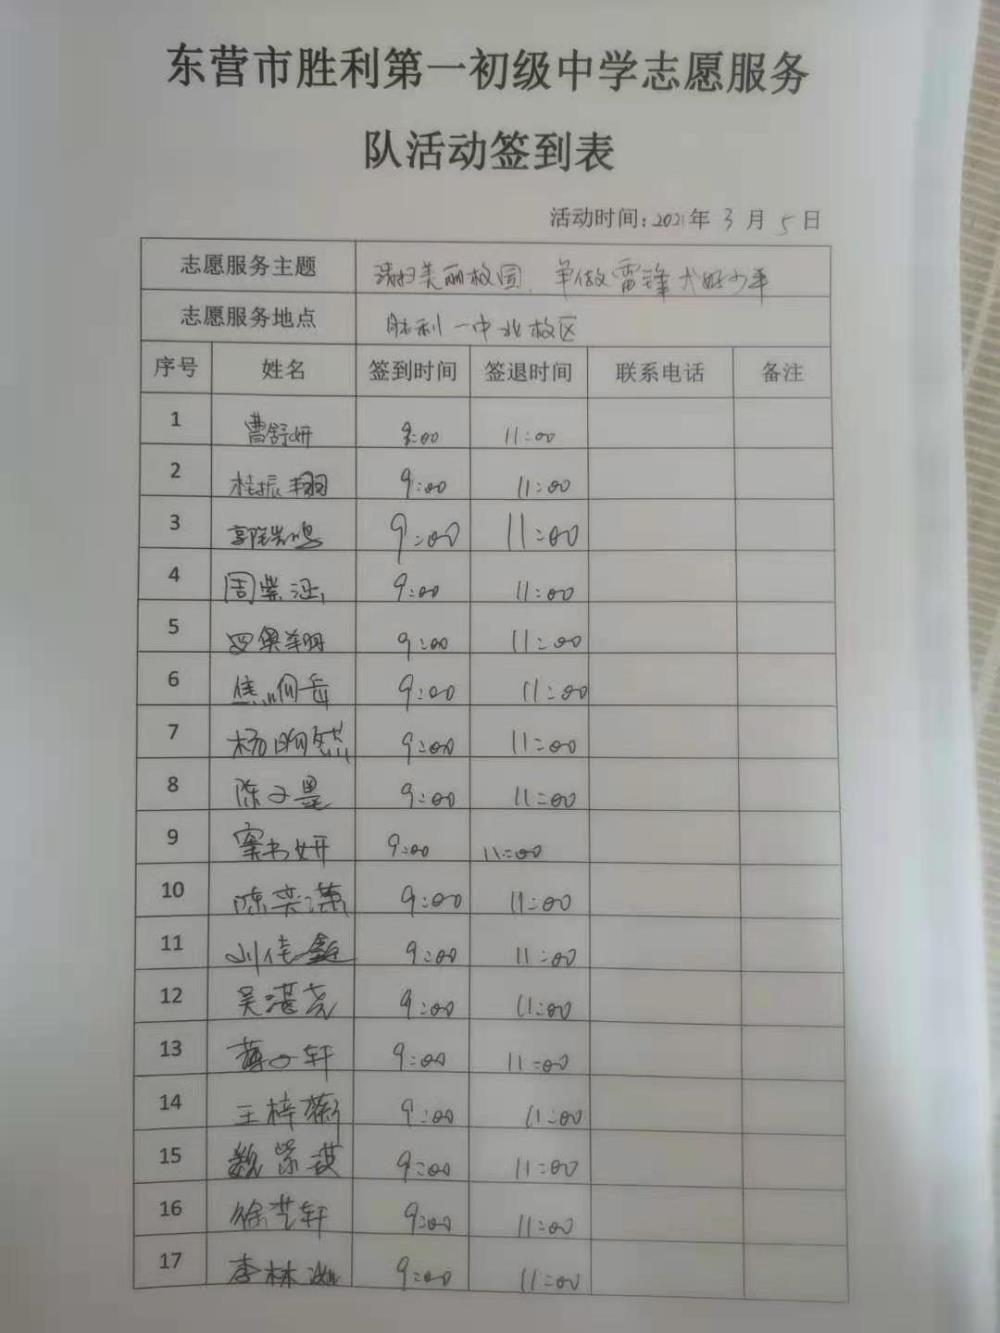 东营市胜利第一初级中学志愿服务
队活动签到表
活动时间:2021年 3 月 5 日
志愿服务主题 清扫美丽校园,争做雷锋式好少年
志愿服务地点 胜利一中北校区
序号 姓名 签到时间 签退时间 联系电话 备注
1 曹舒妍 9:00 11:00
2 桂振翔 9:00 11:00
3 9:00 11:00
4 周紫涵 9:00 11:00
5 9:00 11:00
6 9:00 11:00
7 9:00 11:00
8 陈子墨 9:00 11:00
9 9:00 11:00
10 陈奕潇 9:00 11:00
11 9:00 11:00
12 9:00 11:00
13 9:00 11:00
14 王梓蘅 9:00 11:00
15 魏紫祺 9:00 11:00
16 徐芝轩 9:00 11:00
17 9:00 11:00